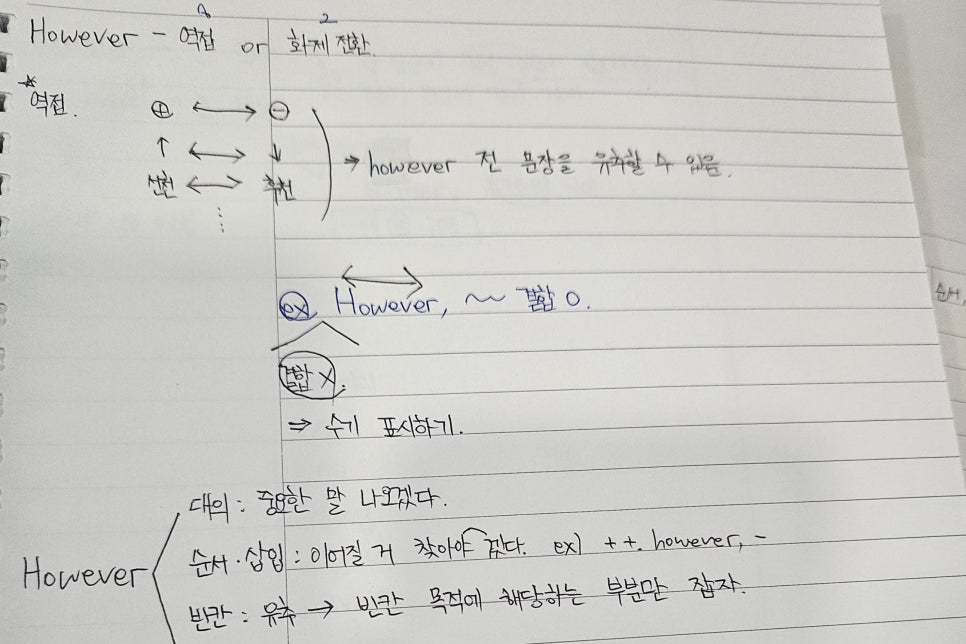 However - 역접 or 화제 전환.
2
☆
역접. ⊕ ↔ ⊖
↑ ↔ ↓
선천 ↔ 후천
⋮
→ however 전 문장을 유추할 수 있음.
순서,
ex) However, ~ 결합 O.
결합 X.
⇒ 수기 표시하기.
대의 : 중요한 말 나오겠다.
However
순서·삽입 : 이어질 거 찾아야 겠다. ex) + +. however, -
빈칸 : 유추 → 빈칸 목적에 해당하는 부분만 잡자.